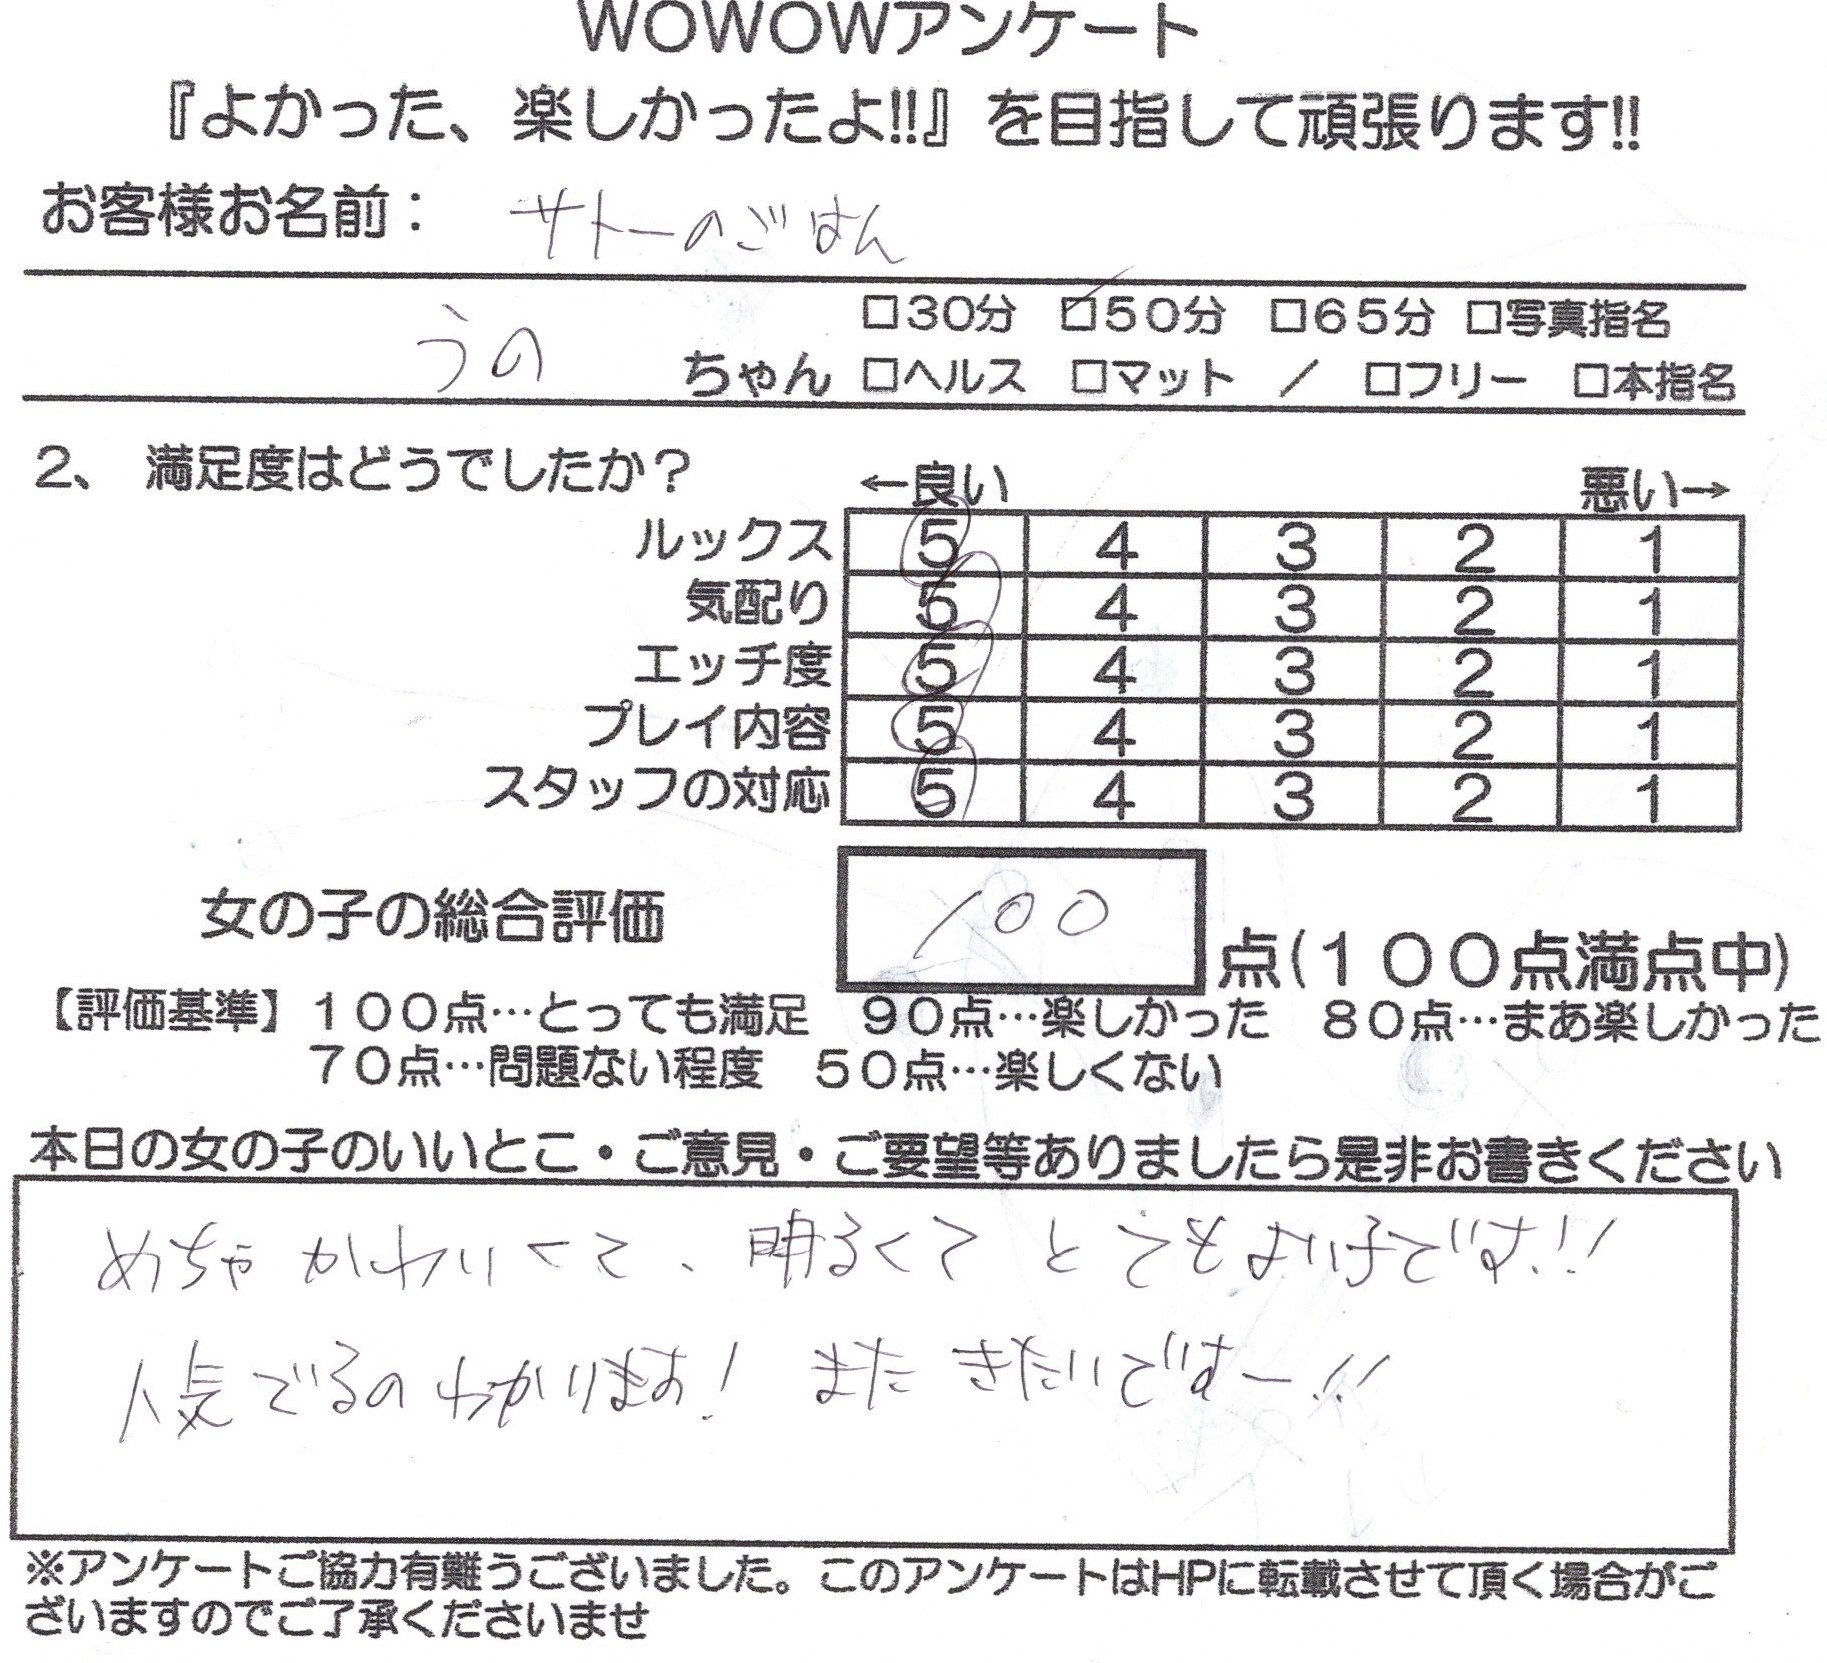 WOWOWアンケート
『よかった、楽しかったよ!!』を目指して頑張ります!!
お客様お名前： サトーのごはん
□30分 ☑50分 □65分 □写真指名
うの ちゃん □ヘルス □マット ／ □フリー □本指名
2、 満足度はどうでしたか？
←良い 悪い→
ルックス 5 4 3 2 1
気配り 5 4 3 2 1
エッチ度 5 4 3 2 1
プレイ内容 5 4 3 2 1
スタッフの対応 5 4 3 2 1
女の子の総合評価 100 点(100点満点中)
【評価基準】100点…とっても満足 90点…楽しかった 80点…まあ楽しかった
70点…問題ない程度 50点…楽しくない
本日の女の子のいいとこ・ご意見・ご要望等ありましたら是非お書きください
めちゃかわいくて、明るくて とてもよい子です!!
人気でるのわかります! またきたいですー!!
※アンケートご協力有難うございました。このアンケートはHPに転載させて頂く場合がご
ざいますのでご了承くださいませ